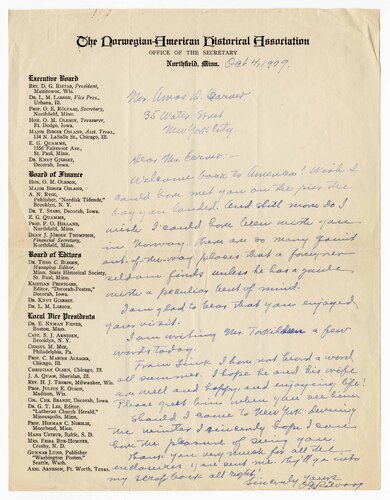 The Norwegian-American Historical Association
OFFICE OF THE SECRETARY
Northfield, Minn. Oct 4, 1929.
Executive Board
REV. D. G. RISTAD, President,
Manitowoc, Wis.
DR. L. M. LARSON, Vice Pres.,
Urbana, Ill.
PROF. O. E. RÖLVAAG, Secretary,
Northfield, Minn.
HON. O. M. OLESON, Treasurer,
Ft. Dodge, Iowa.
MAJOR BIRGER OSLAND, Asst. Treas.,
134 N. LaSalle St., Chicago, Ill.
E. G. QUAMME,
1556 Fairmont Ave.,
St. Paul, Minn.
DR. KNUT GJERSET,
Decorah, Iowa.
Board of Finance
HON. O. M. OLESON,
MAJOR BIRGER OSLAND,
A. N. RYGG,
Publisher, "Nordisk Tidende,"
Brooklyn, N. Y.
DR. T. STABO, Decorah, Iowa.
E. G. QUAMME,
St. Paul, Minn.
PROF. P. O. HOLLAND,
Northfield, Minn.
DEAN J. JÖRGEN THOMPSON,
Financial Secretary,
Northfield, Minn.
Board of Editors
DR. THEO. C. BLEGEN,
Managing Editor,
Minn. State Historical Society,
St. Paul, Minn.
KRISTIAN PRESTGARD,
Editor, "Decorah-Posten,"
Decorah, Iowa.
DR. KNUT GJERSET,
DR. L. M. LARSON.
Local Vice Presidents
DR. E. NYMAN FIGVED,
Boston, Mass.
CAPT. S. J. ARNESEN,
Brooklyn, N. Y.
CONSUL M. MOE,
Philadelphia, Pa.
PROF. C. MARIUS ALSAGER,
Chicago, Ill.
CHRISTIAN OLSEN, Chicago, Ill.
J. A. QUAM, Sheridan, Ill.
REV. H. J. THORPE, Milwaukee, Wis.
PROF. JULIUS E. OLSON,
Madison, Wis.
COL. CHR. BRANDT, Decorah, Iowa
DR. G. T. LEE, Editor
"Lutheran Church Herald,"
Minneapolis, Minn.
PROF. HERMAN C. NORDLIE,
Moorhead, Minn.
HANS USTRUD, Baltic, S. D.
MRS. FRIDA BUE-HOMNES,
Crosby, N. D.
GUNNAR LUND, Publisher
"Washington Posten,"
Seattle, Wash.
AXEL ARNESON, Ft. Worth, Texas.
Mr. Amos W. Carver
35 Water Street
New York City
Dear Mr. Carver:
Welcome back to America! Wish I
could have met you on the pier the
day you landed. And still more do I
wish I could have been with you
in Norway. There are so many quaint
out-of-the-way places that a foreigner
seldom finds unless he has a guide
with a peculiar bent of mind.
I am glad to hear that you enjoyed
your visit.
I am writing Mr. a few
words today.
From I have not heard a word
all summer. I hope he and his wife
are well and happy, and enjoying life!
Please greet him when you see him.
Should I come to New York during
the winter I sincerely hope I can
have the pleasure of seeing you.
Thank you very much for all the
enclosures you sent me. They'll go into
my scrap book all right.
Sincerely yours